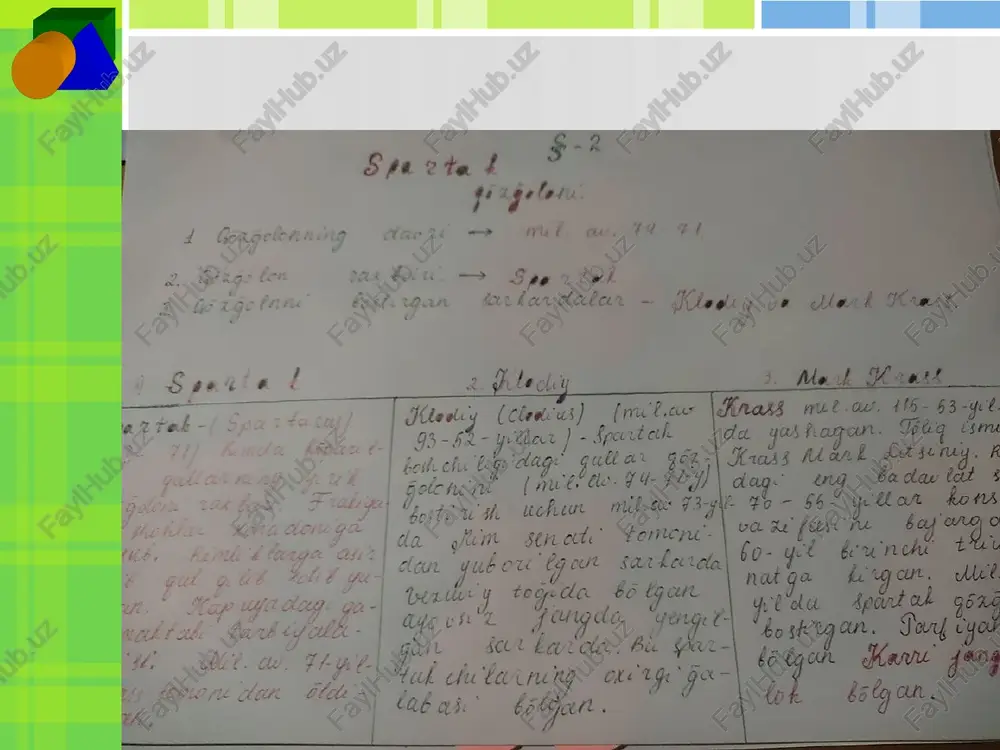 §-2
Spartak
qözğoloni.
1 Qözğolonning davri → mil. av. 74 71
2. Qözgolon raxbiri → Spartak
3 Qözgolnni bostirgan sarkardalar - Klodiy va Mark Krass
1 Spartak
artak-(Spartacus)
71) Rimda
qullarning yirik
Frakiya
xonadoniga
Rimliklarga asir
qul qilib
Kapuyadagi ga-
Mil. av. 71-yil-
tomonidan öldi
2. Klodiy
Klodiy (Clodius) (mil.av
93-52-yillar)-Spartak
boshchiligidagi qullar qöz-
ğolonini (mil. av. 74-71.y)
bostirish uchun mil.av 73-yil-
da Rim senati tomoni-
dan yuborilgan sarkarda
Vezuviy toğida bölgan
ayovsiz jangda yengil-
gan sarkarda. Bu Spar-
takchilarning oxirgi ğa-
labasi bölgan.
3. Mark Krass
Krass mil. av. 115-53-yil-
da yashagan. Töliq ismi
Krass Mark Litsiniy. R
dagi eng badavlat s
70-55-yillar kons
vazifasini bajarga
60-yil birinchi triu
natga kirgan. Mil
yilda Spartak qözğ
bostirgan. Parfiya
bölgan Karri jang
lok bölgan.
FaylHub.uz